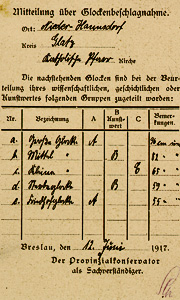 Mitteilung über Glockenbeschlagnahme.
Ort: Nieder-Hannsdorf
Kreis Glatz
Katholische Pfarr Kirche
Die nachstehenden Glocken sind bei der Beur-
teilung ihres wissenschaftlichen, geschichtlichen oder
Kunstwertes folgenden Gruppen zugeteilt worden:
Nr. Bezeichnung A B Kunstwert C Bemerkungen.
a. Große Glocke A cm
b. Mittel " B 82 "
c. Kleine " C "
d. Sterbeglocke B 59 "
e. A 55 "
Breslau, den 12. Juni 1917.
Der Provinzialkonservator
als Sachverständiger.